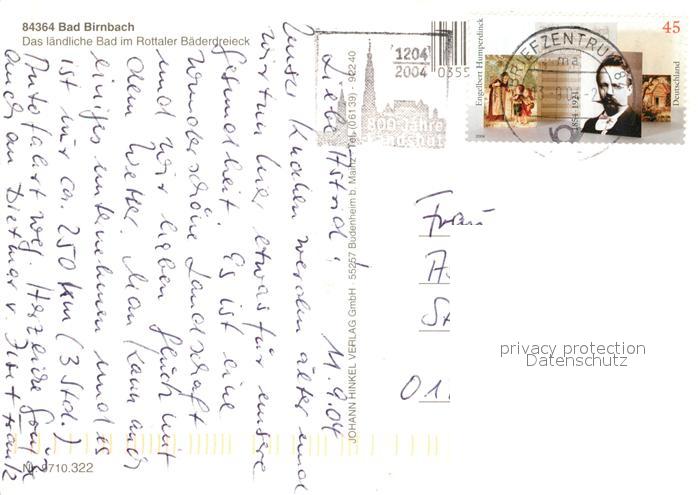 84364 Bad Birnbach
Das ländliche Bad im Rottaler Bäderdreieck
Nr. 9710.322
JOHANN HINKEL VERLAG GmbH · 55257 Budenheim b. Mainz · Tel. (06139) 92240
11.9.04
Liebe Astrid,
Unsere Knochen werden älter und
wir tun hier etwas für unsere
Gesundheit. Es ist eine
wunderschöne Landschaft
und wir haben Glück mit
dem Wetter. Man kann auch
einiges unternehmen und es
ist nur ca. 250 km (3 Std.)
Autofahrt weg. Herzliche Grüße
auch an Dietmar v.
1204
2004
0355
800 Jahre
Landshut
BRIEFZENTRUM
84
Engelbert Humperdinck
1854-1921
45
Deutschland
2004
Frau
A
St
01
privacy protection
Datenschutz